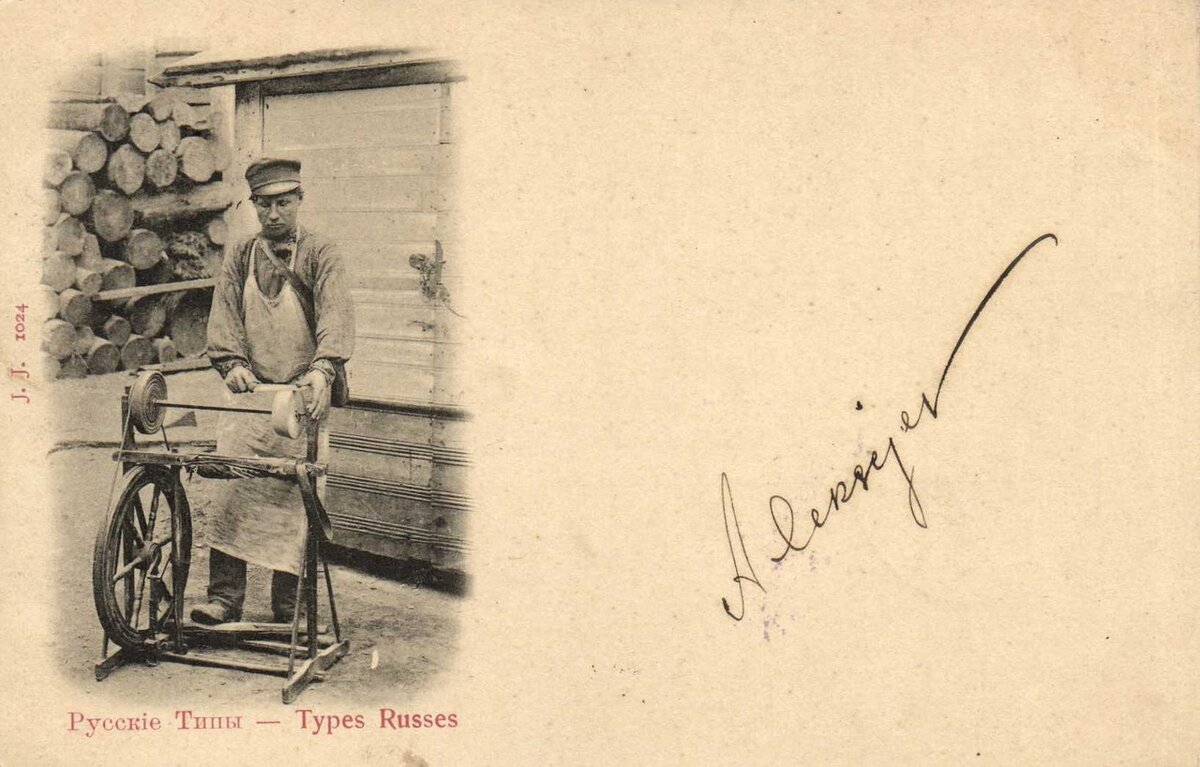 J. J. 1024
Русскіе Типы — Types Russes
Aleksejev